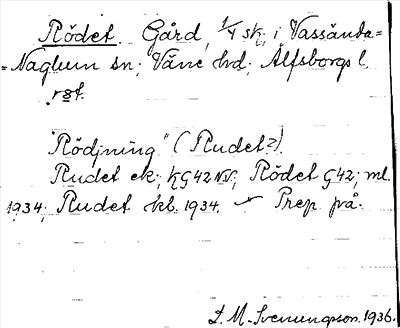 Rödet. Gård, 1/4 sk; i Vassända=
=Naglum sn; Väne hd; Älfsborgs l.
rø̄t.
"Rödjning" (Rudet?).
Rudet ek; KG42NV; Rödet G42; ml.
1934; Rudet kb. 1934. Prep på.
D. M. Svenungsson. 1936.